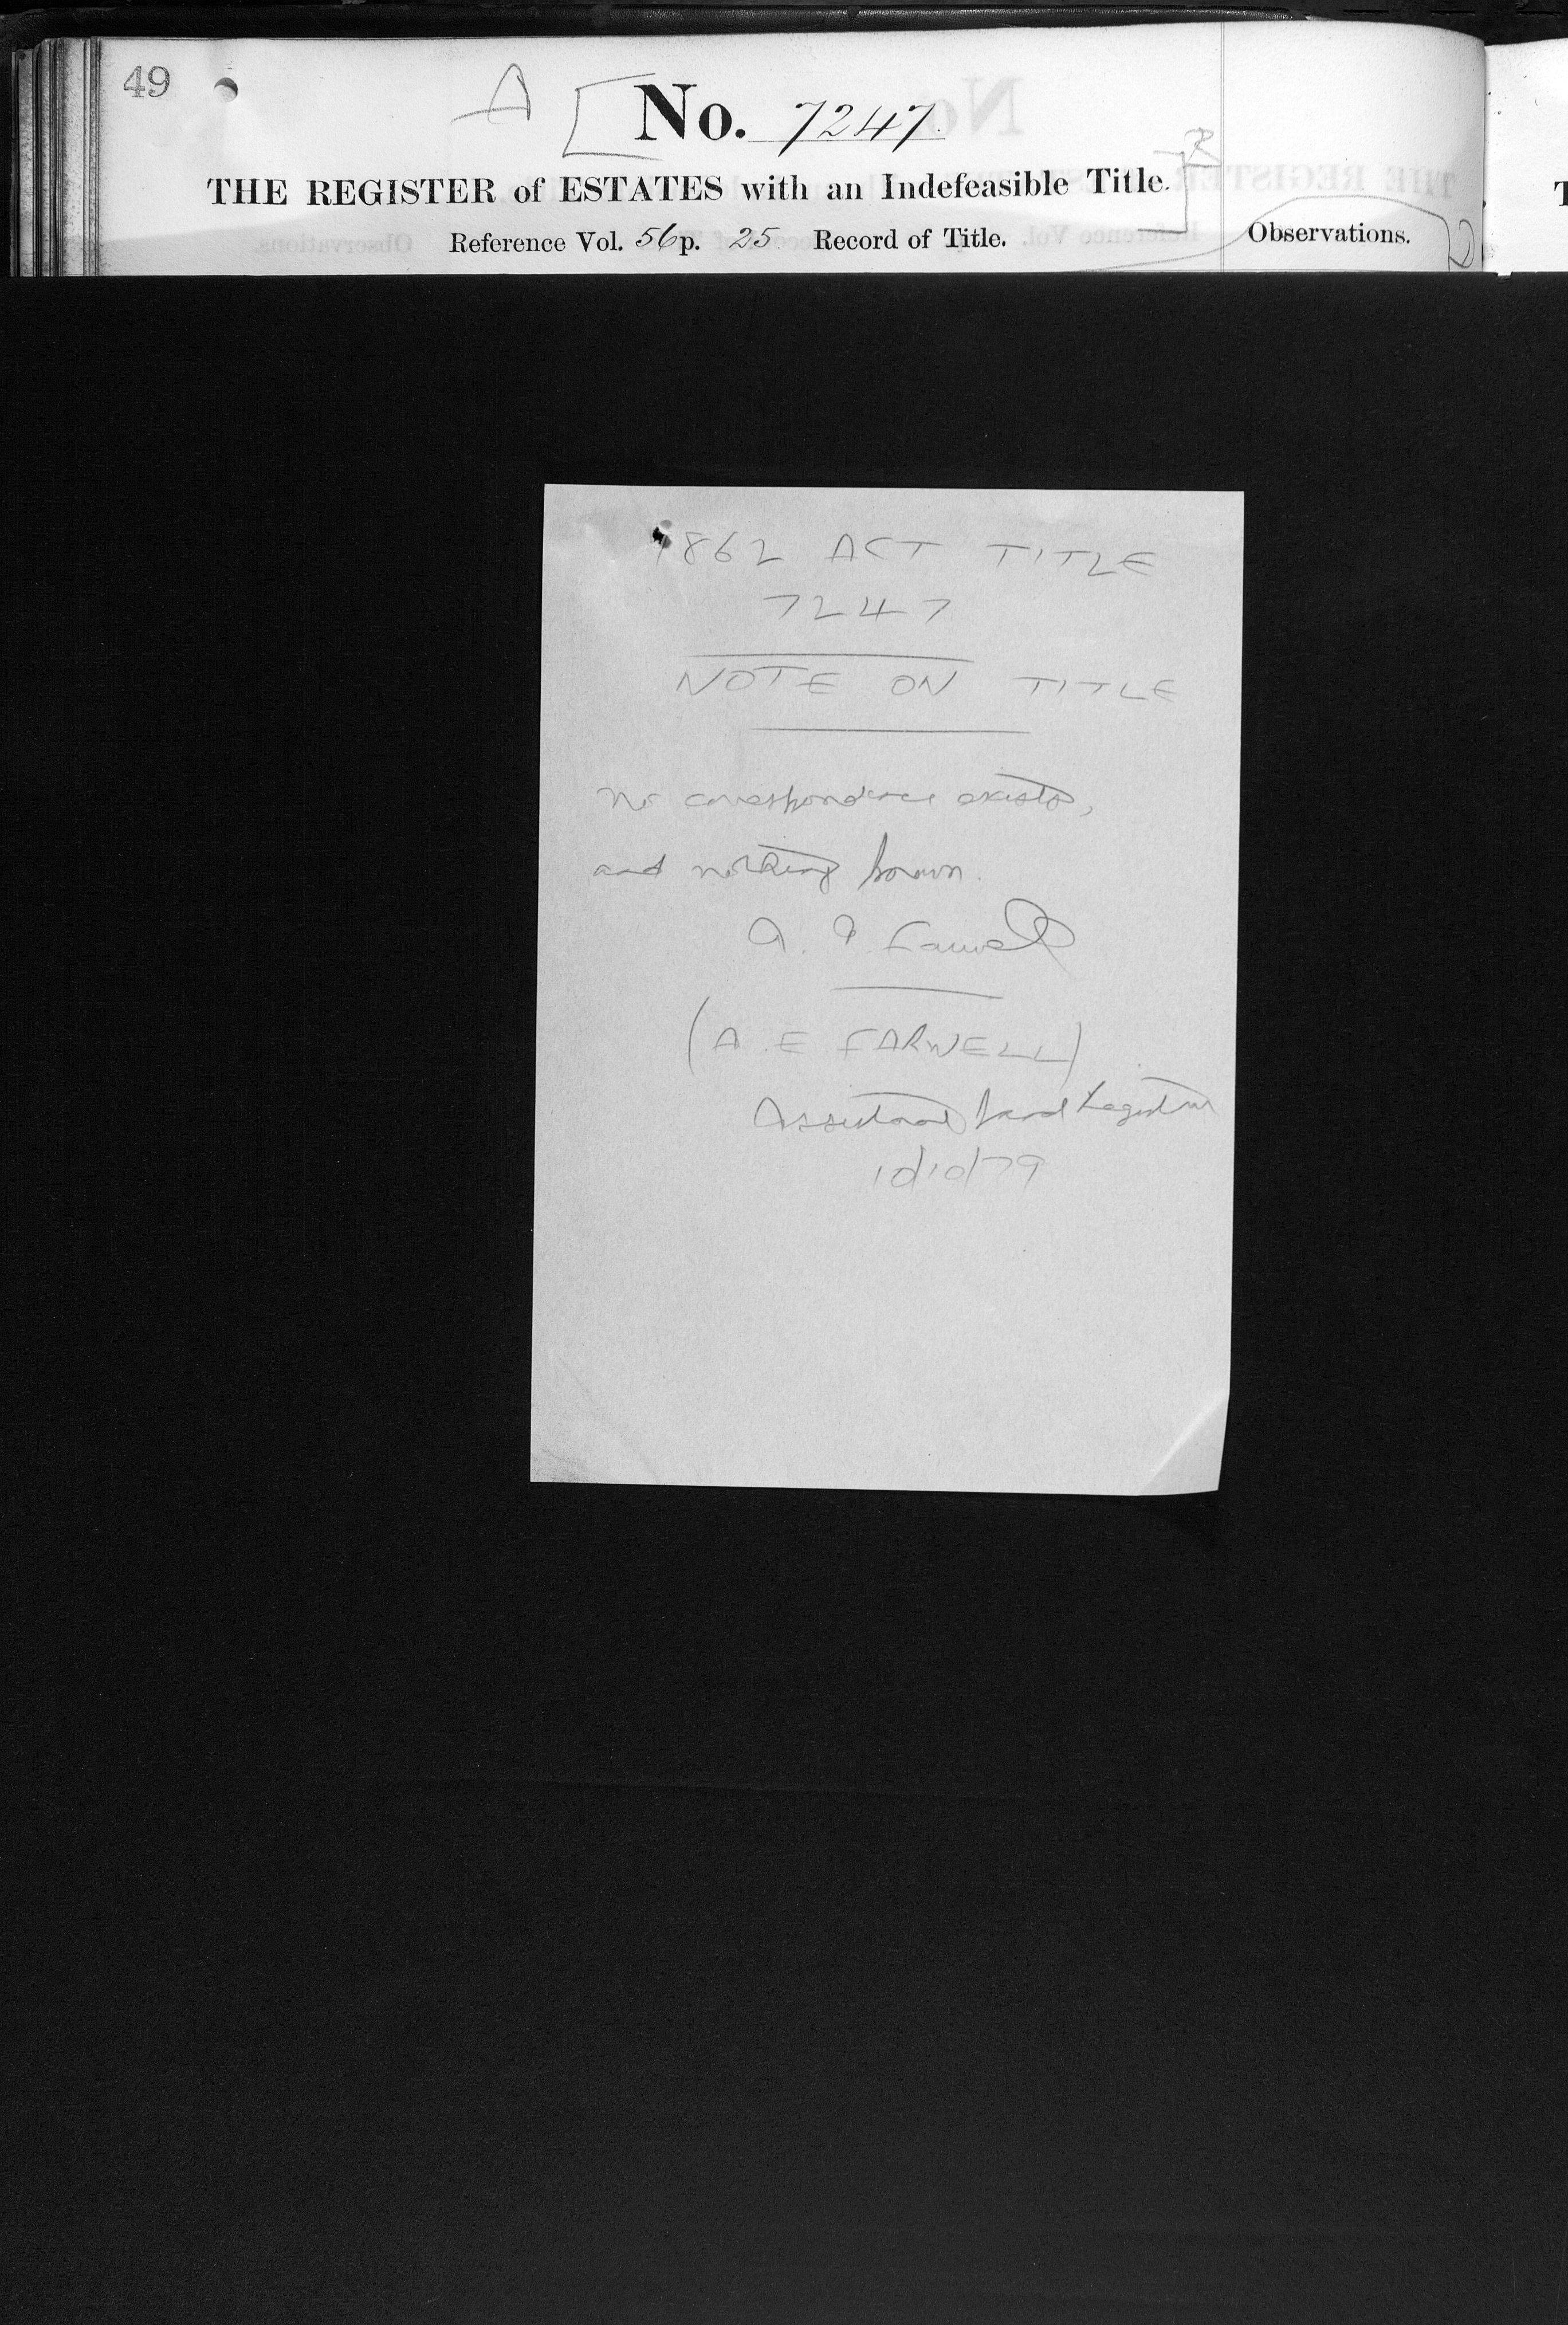 49
A
No. 7247.
B
THE REGISTER of ESTATES with an Indefeasible Title.
Reference Vol. 56 p. 25 Record of Title.
Observations.
1862 ACT TITLE
7247
NOTE ON TITLE
No correspondence exists,
and nothing known.
A. E. Farwell
(A. E. FARWELL)
Assistant Land Registrar
10/10/79